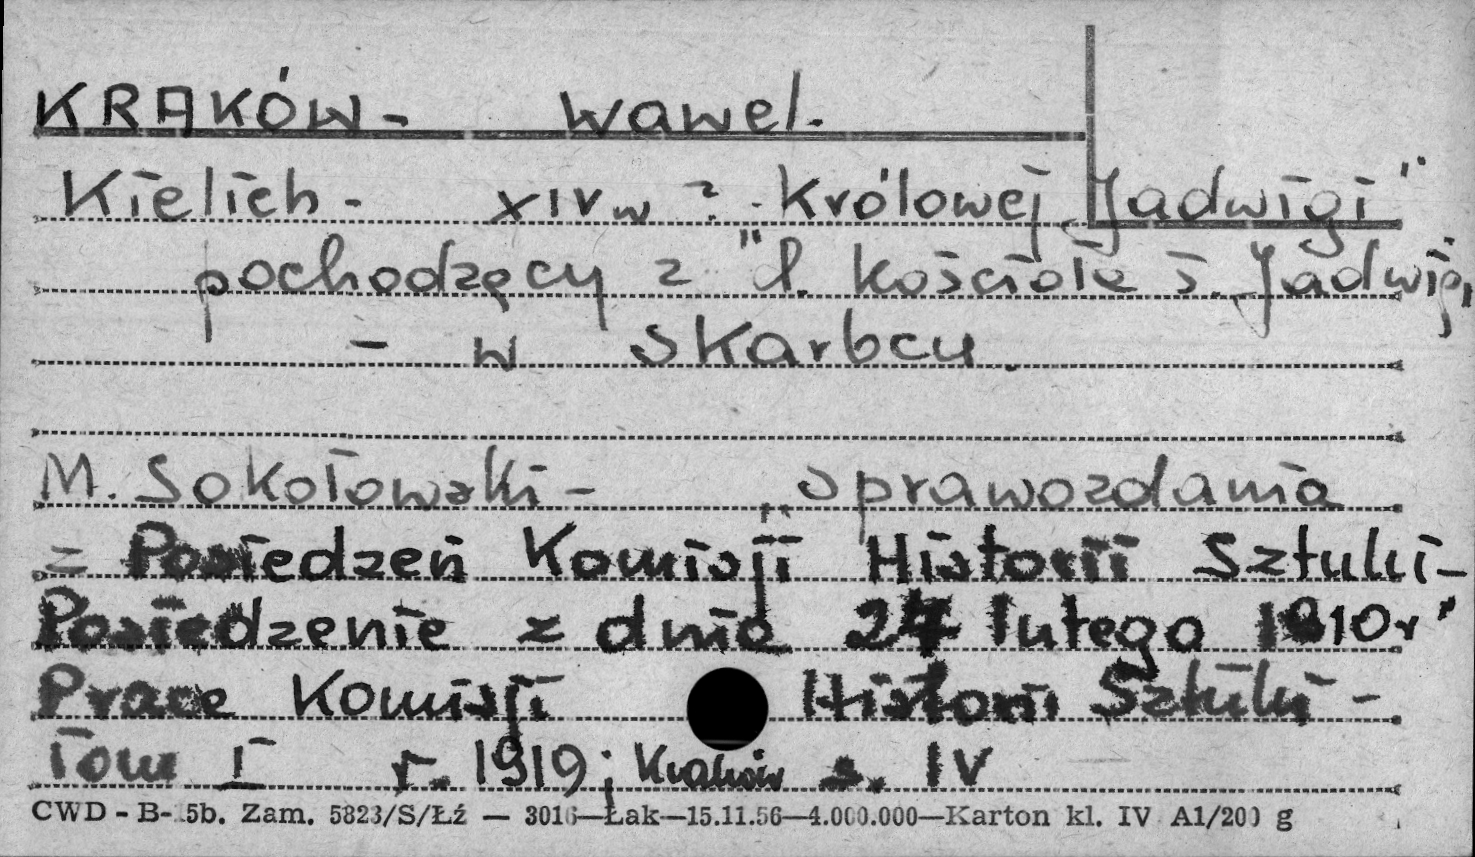 KRAKÓW - Wawel.
Kielich - XIV w ? Królowej Jadwigi"
pochodzący z "d. kościoła ś. Jadwigi
- w skarbcu.
M. Sokołowski - "Sprawozdania
z Posiedzeń Komisji Historii Sztuki -
Posiedzenie z dnia 24 lutego 1910r"
Prace Komisji Historii Sztuki -
Tom I r. 1919; Kraków s. IV
CWD - B- 5b. Zam. 5823/S/Łź — 3016—Łak—15.11.56—4.000.000—Karton kl. IV A1/200 g